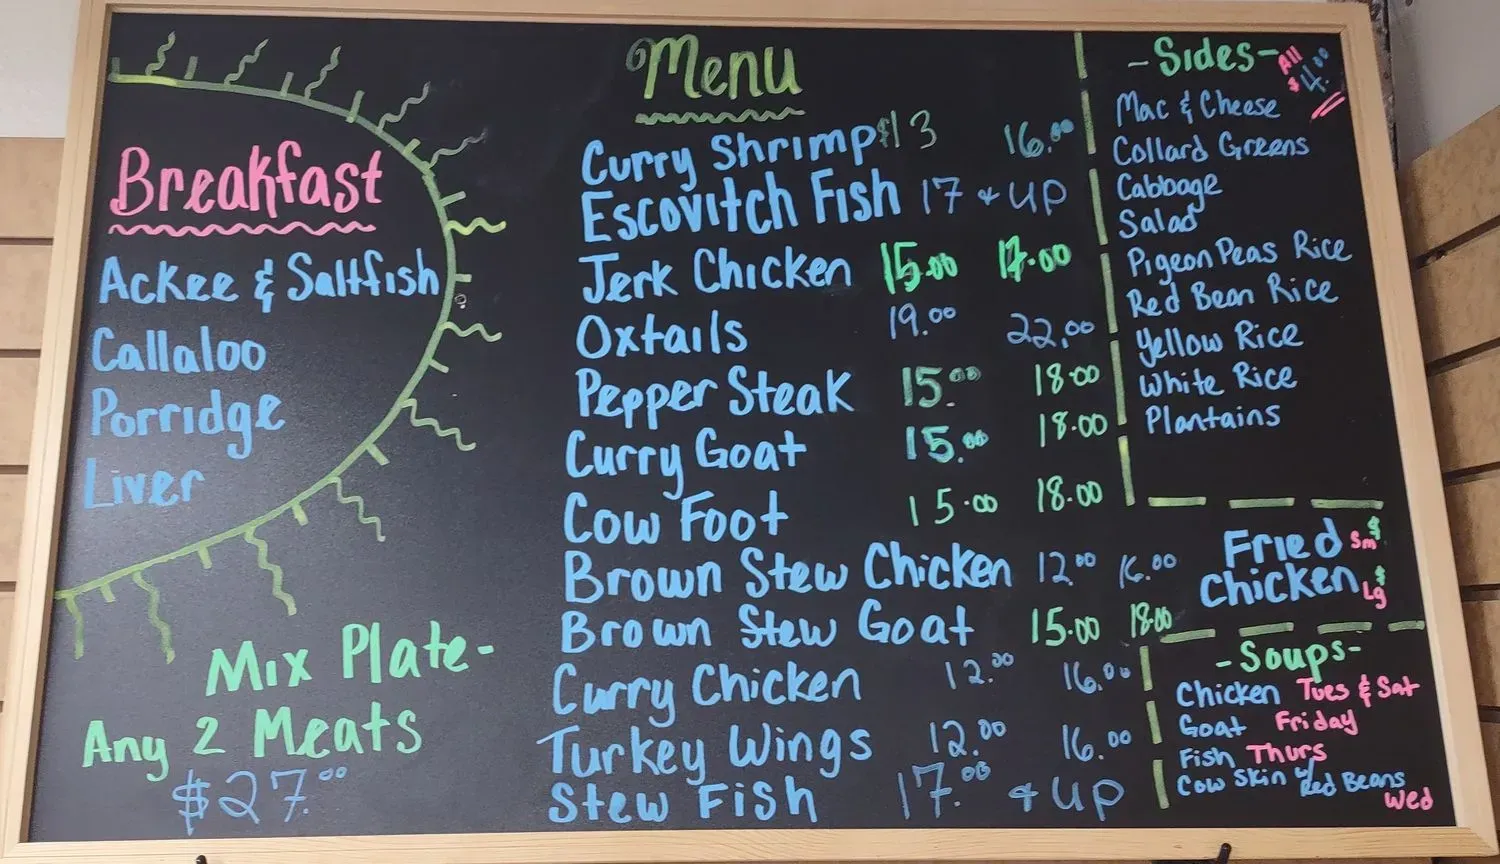 Breakfast
Ackee & Saltfish
Callaloo
Porridge
Liver
Mix Plate-
Any 2 Meats
$27.00
Menu
Curry Shrimp $13 16.00
Escovitch Fish 17 & UP
Jerk Chicken 15.00 17.00
Oxtails 19.00 22.00
Pepper Steak 15.00 18.00
Curry Goat 15.00 18.00
Cow Foot 15.00 18.00
Brown Stew Chicken 12.00 16.00
Brown Stew Goat 15.00 18.00
Curry Chicken 12.00 16.00
Turkey Wings 12.00 16.00
Stew Fish 17.00 & UP
-Sides- All $4.00
Mac & Cheese
Collard Greens
Cabbage
Salad
Pigeon Peas Rice
Red Bean Rice
Yellow Rice
White Rice
Plantains
Fried Sm $
Chicken Lg $
-Soups-
Chicken Tues & Sat
Goat Friday
Fish Thurs
Cow Skin w/ Red Beans
Wed